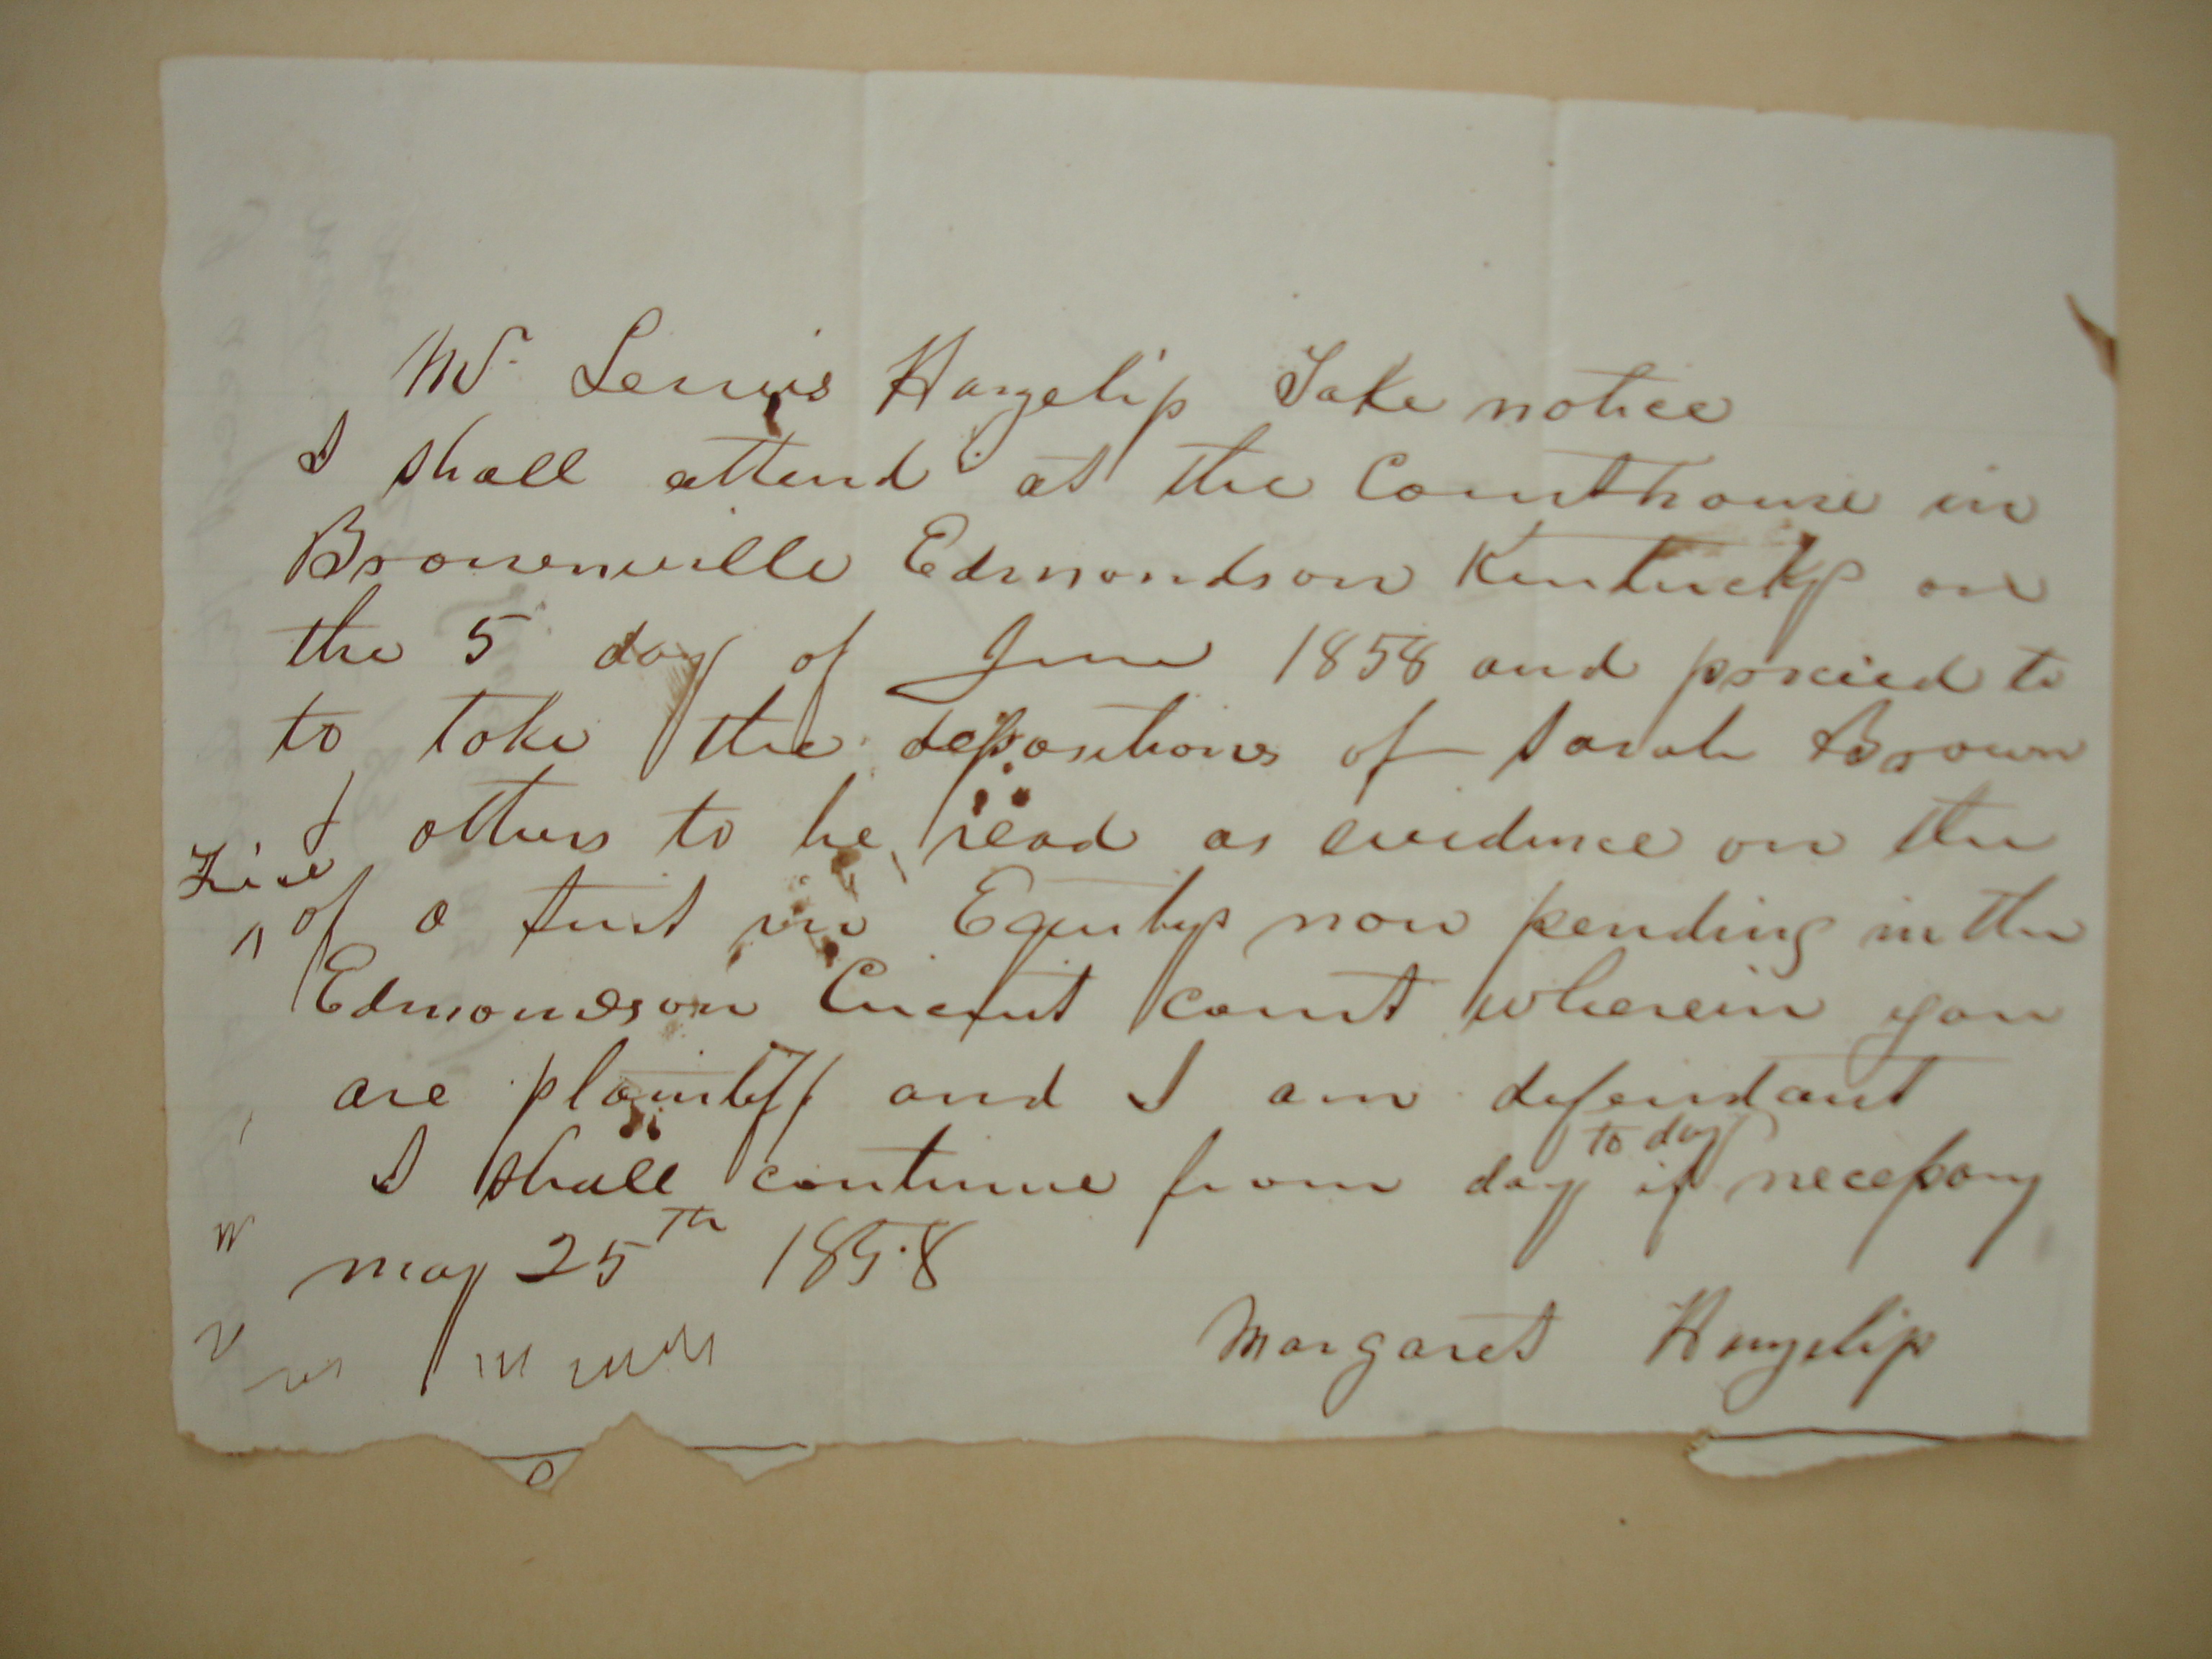 Mr. Lewis Hazelip Take notice
I shall attend at the Courthouse in
Brownsville Edmondson Kentucky on
the 5 day of June 1858 and proceed to
to take the depositions of Sarah Brown
& others to be read as evidence on the
of a suit in Equity now pending in the
Edmondson Circuit court wherein you
are plaintiff and I am defendant
I shall continue from day to day if necessary
may 25th 1858
Margaret Hazelip